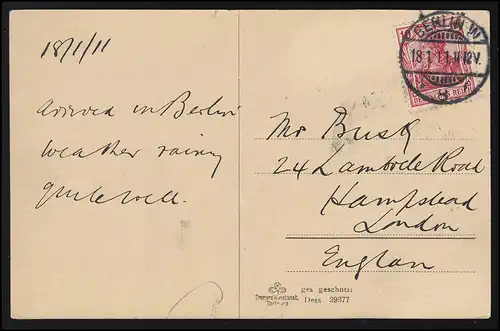 18/1/11
arrived in Berlin
weather rainy
quite well.
BERLIN W
18.1.11.11-12V.
10
DEUTSCHES REICH
Mr Busk
24 Lambolle Road
Hampstead
London
England
ges geschützt
Dess 29877